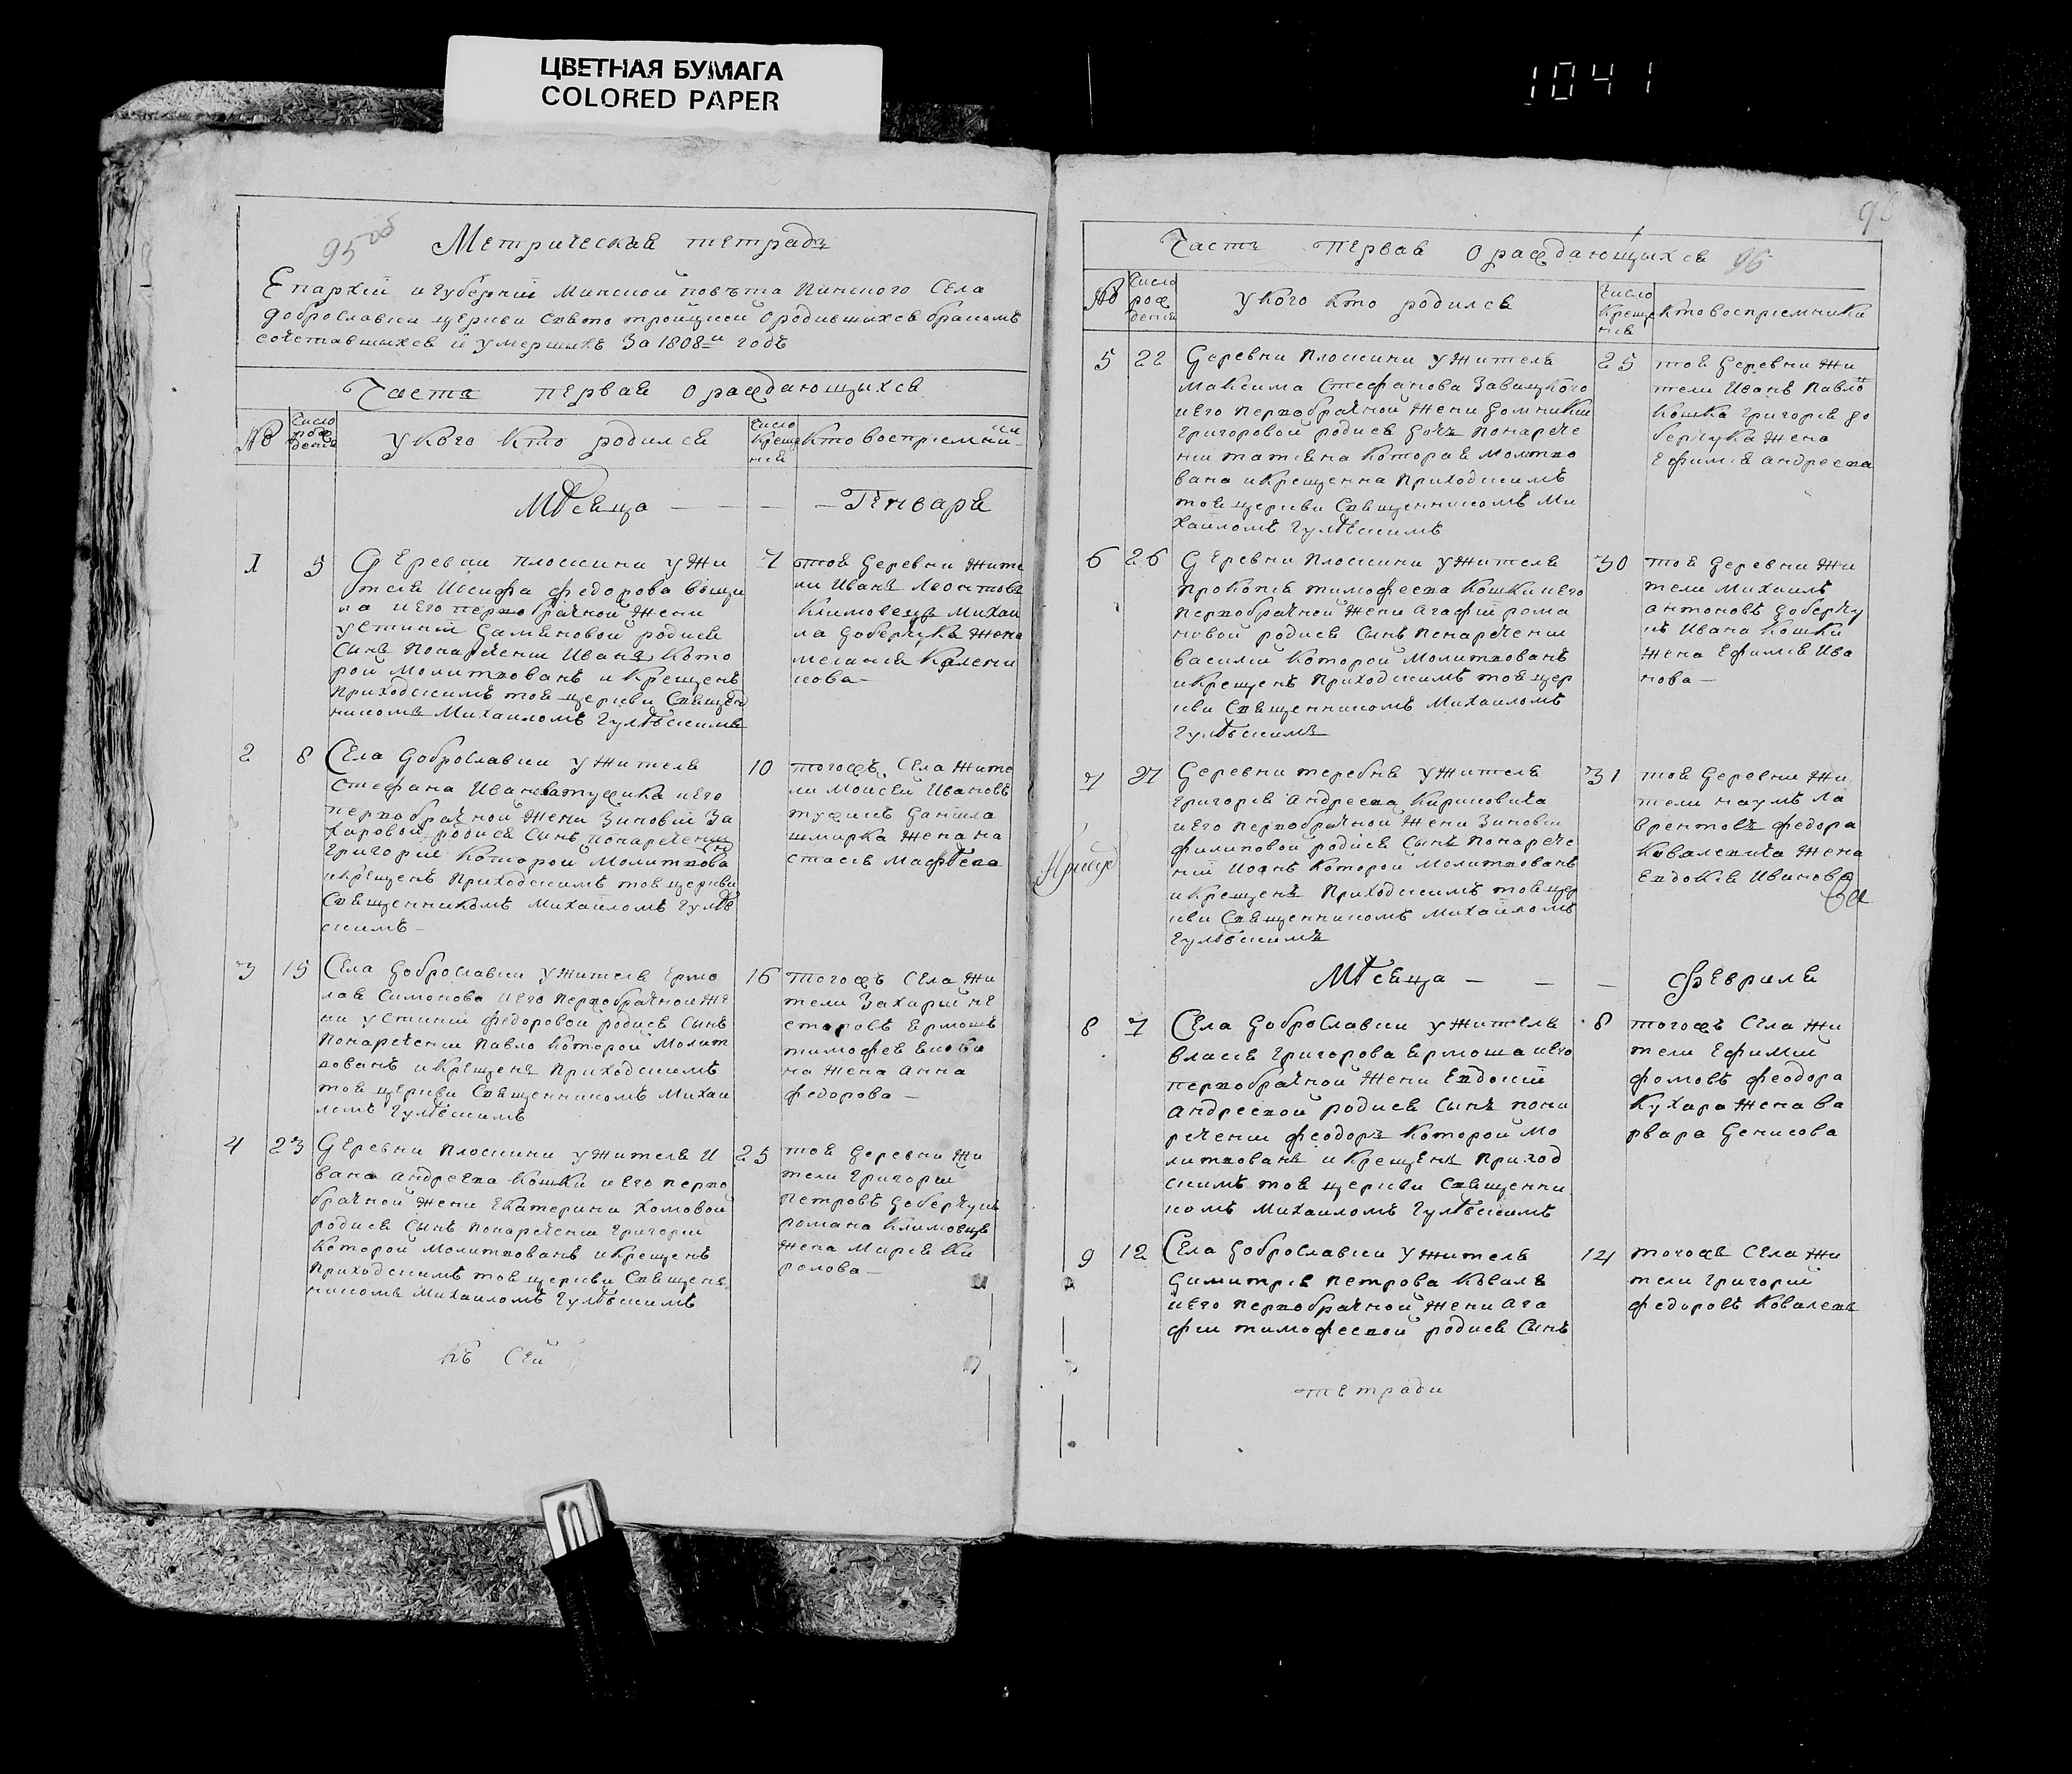 ЦВЕТНАЯ БУМАГА
COLORED PAPER
1041
95
Метрическая тетрадь
Епархіи и губерніи Минской повѣта Пинского Села
доброславки церкви Свято троицкой о родившихся бракомъ
сочетавшихся и умершихъ За 1808й годъ
Часть первая о раждающихся
№
Число рождения
у кого кто родился
Число крещения
кто восприемники
МѢсяца - - - Генваря
1 5
Деревни плоскини у жи
теля Иосифа федорова
на и его первобрачной жени
устиніи Дамяновой родися
Сынъ понаречени Иванъ Кото
рой Молитвованъ и Крещенъ
Приходскимъ тоя церкви Священ
никомъ Михаиломъ
7
тоя деревни жите
ли Иванъ Леонтовъ
Климовецъ михаи
ла доберчука жена
мелания Калени
кова
2 8
Села доброславки у жителя
Стефана Иванова тушика и его
первобрачной жени Зиновіи За
харовой родися Сынъ понаречени
григорий Которой Молитвова
и Крещенъ Приходскимъ тоя церкви
Священникомъ Михаиломъ
скимъ
10
тогожъ Села жите
ли Моисей Ивановъ
данила
шмирка жена на
стасия Мафѣева
3 15
Села доброславки у жителя Ермо
лая Симонова и его первобрачной же
ни устиніи федоровой родися Сынъ
понаречени Павло Которой Молит
вованъ и Крещенъ Приходскимъ
тоя церкви Священникомъ Михаи
ломъ
16
тогожъ Села жи
тели Захарий не
сторовъ Ермошъ
тимофея
на жена анна
федорова
4 23
деревни плоскини у жителя И
вана андреева Кошки и его перво
брачной жени Екатерини Хомовой
родися Сынъ понаречени григорий
Которой Молитвованъ и Крещенъ
Приходскимъ тоя церкви Священ
никомъ Михаиломъ
25
тоя деревни жи
тели григорий
Петровъ доберчукъ
романа Климовца
жена Мария Ки
рилова
къ Сей
96
Часть первая о раждающихся 96
№
Число рождения
у кого кто родился
Число Крещения
кто восприемники
5 22
деревни плоскини у жителя
максима Стефанова Завацкого
и его первобрачной жени домникии
григоровой родися дочь понарече
ни татияна Которая Молитво
вана и Крещенна Приходскимъ
тоя церкви Священникомъ Ми
хаиломъ
25
тоя деревни жи
тели Иванъ Павло
Кошка григория до
берчука жена
Ефимия андреева
6 26
деревни плоскини у жителя
прокопия тимофеева Кошки и его
первобрачной жени агафіи рома
новой родися Сынъ понаречени
василий Которой Молитвованъ
и Крещенъ Приходскимъ тоя цер
кви Священникомъ Михаиломъ
30
тоя деревни жи
тели михаилъ
антоновъ доберчу
къ Ивана Кошки
жена Ефимия Ива
нова
7 27
деревни теребня у жителя
григория андреева Кириовича
и его первобрачной жени Зиновіи
филиповой родися Сынъ понарече
ній Иоанъ Которой Молитвованъ
и Крещенъ Приходскимъ тоя цер
кви Священникомъ Михаиломъ
31
тоя деревни жи
тели наумъ ла
врентовъ федора
Ковалевича жена
Евдокия Иванова
МѢсяца - - - Февраля
8 7
Села доброславки у жителя
власия григорова Ермоша и его
первобрачной жени Евдокіи
андреевой родися Сынъ пона
речени феодоръ Которой Мо
литвованъ и Крещенъ Приход
скимъ тоя церкви Священни
комъ Михаиломъ
8
тогожъ Села жи
тели Ефимий
фомовъ феодора
Кухара жена Ва
рвара денисова
9 12
Села доброславки у жителя
димитрия петрова Коваля
и его первобрачной жени ага
фіи тимофеевой родися Сынъ
14
тогожъ Села жи
тели григорий
федоровъ
тетради